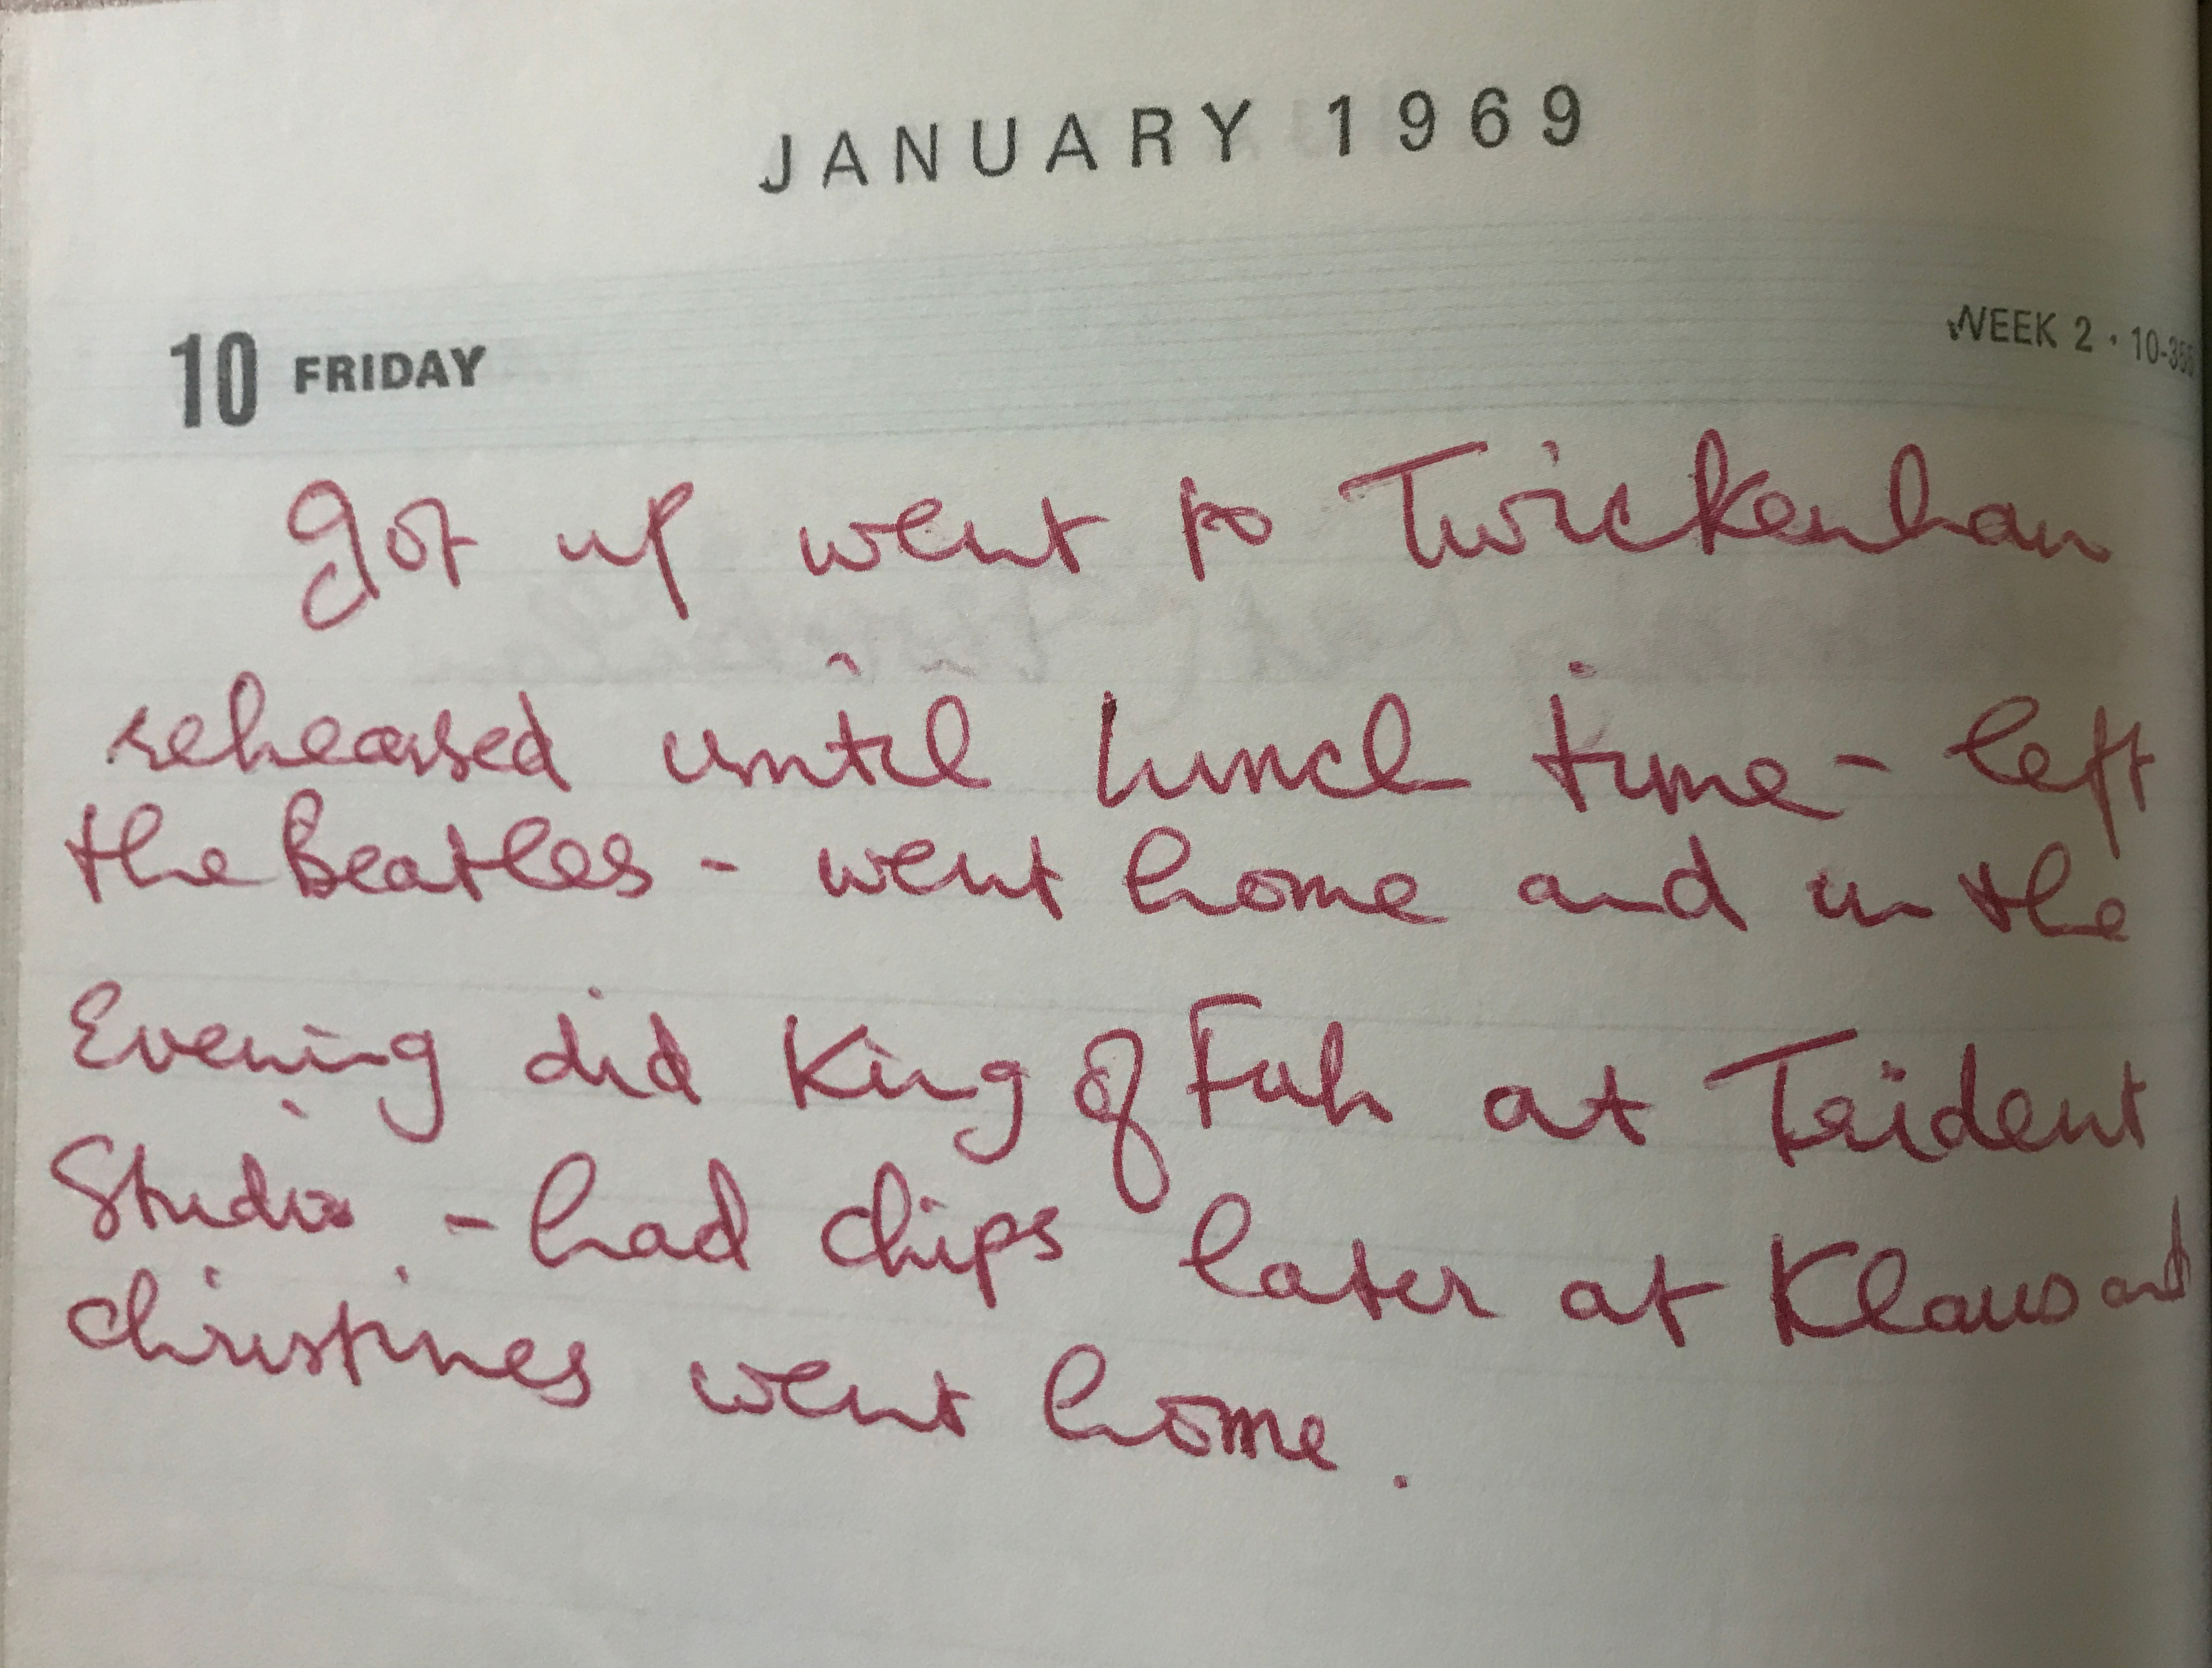 JANUARY 1969
10 FRIDAY
WEEK 2 · 10-355
got up went to Twickenham
rehearsed until lunch time - left
the Beatles - went home and in the
Evening did King of Fuh at Trident
Studio - had chips later at Klaus and
christines went home.